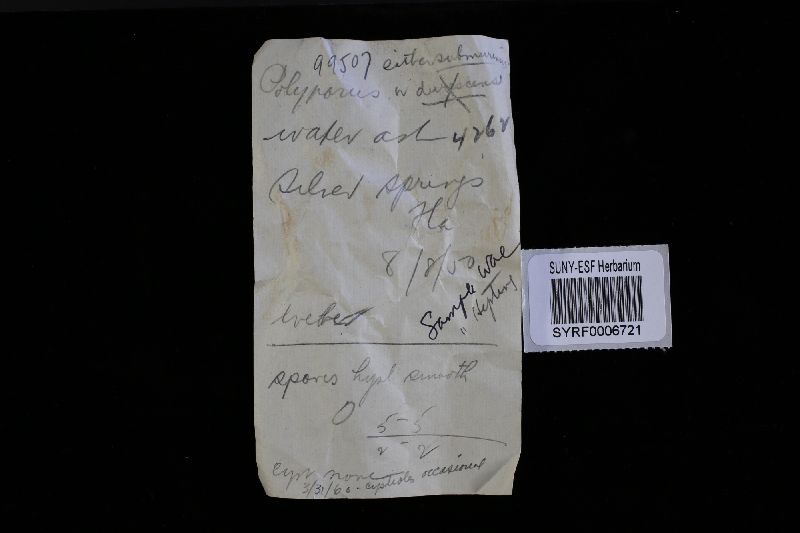 99507 either submurinus
Polyporus or dutescens
water ash 4262
Silver Springs
Fla
8/8/50
Sample WAC
" Hepting
Weber
spores hyal smooth
O 5-5
2-2
cyst none
3/31/60 - cystioles occasional
SUNY-ESF Herbarium
SYRF0006721